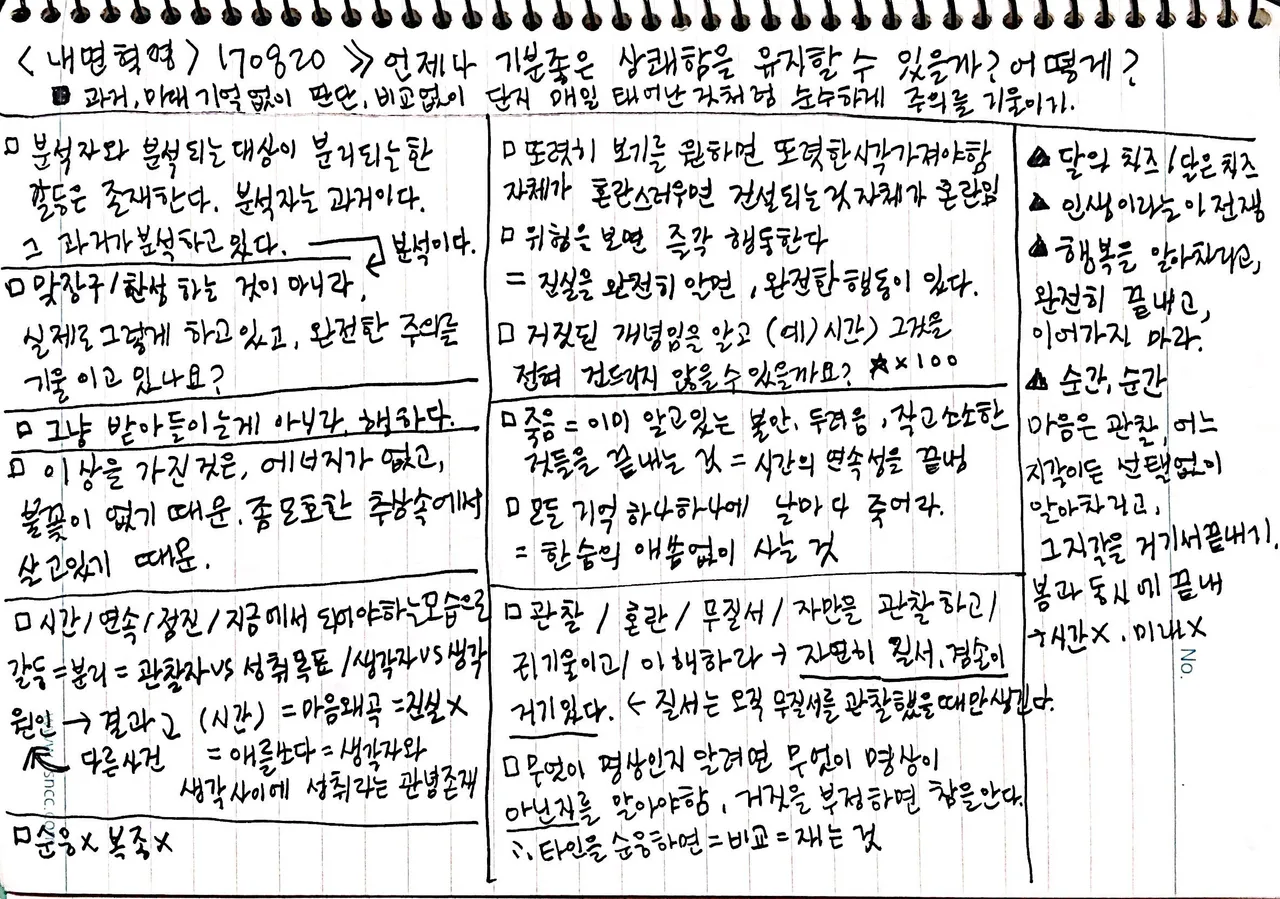 <내면혁명> 170820 ≫ 언제나 기분좋은 상쾌함을 유지할 수 있을까? 어떻게?
■ 과거, 미래 기억없이 판단, 비교없이 단지 매일 태어난 것처럼 순수하게 주의를 기울이기.
□ 분석자와 분석되는 대상이 분리되는한
갈등은 존재한다. 분석자는 과거이다.
그 과거가 분석하고 있다. → 분석이다.
□ 맞장구/찬성 하는 것이 아니라,
실제로 그렇게 하고 있고, 완전한 주의를
기울이고 있나요?
□ 그냥 받아들이는게 아니라, 행하다.
□ 이상을 가진것은, 에너지가 없고,
불꽃이 없기 때문. 좀 모호한 추상속에서
살고있기 때문.
□ 시간/연속/정진/지금에서 되어야하는모습으로
갈등=분리= 관찰자VS 성취목표/생각자VS생각
원인 → 결과고 (시간) =마음왜곡=진실X
다른사건 = 애를쓰다=생각자와
생각사이에 성취라는 관념존재
□ 순응X 복종X
□ 또렷히 보기를 원하면 또렷한시각가져야함
자체가 혼란스러우면 건설되는것 자체가 혼란임
□ 위험은 보면 즉각 행동한다
= 진실을 완전히 알면, 완전한 행동이 있다.
□ 거짓된 개념임을 알고 (예)시간) 그것을
전혀 건드리지 않을수 있을까요? ☆×100
□ 죽음=이미 알고있는 불안, 두려움, 작고소소한
것들을 끝내는 것 = 시간의 연속성을 끝냉
□ 모든 기억 하나하나에 날마다 죽어라.
= 한 숨의 애씀없이 사는 것
□ 관찰 / 혼란 / 무질서 / 자만을 관찰하고/
귀기울이고/ 이해하라 → 자연히 질서, 겸손이
거기있다. ← 질서는 오직 무질서를 관찰했을때만생긴다.
□ 무엇이 명상인지 알려면 무엇이 명상이
아닌지를 알아야함, 거짓을 부정하면 참을안다.
∴타인을 순응하면=비교=재는 것
▲ 달의 치즈/닮은치즈
▲ 인생이라는 이 전쟁
▲ 행복을 알아차리고,
완전히 끝내고,
이어가진 마라.
▲ 순간, 순간
마음은 관찰, 어느
지각이든 선택없이
알아차리고,
그지각을 거기서끝내기.
봄과 동시에 끝내
→시간X, 미래X
No.